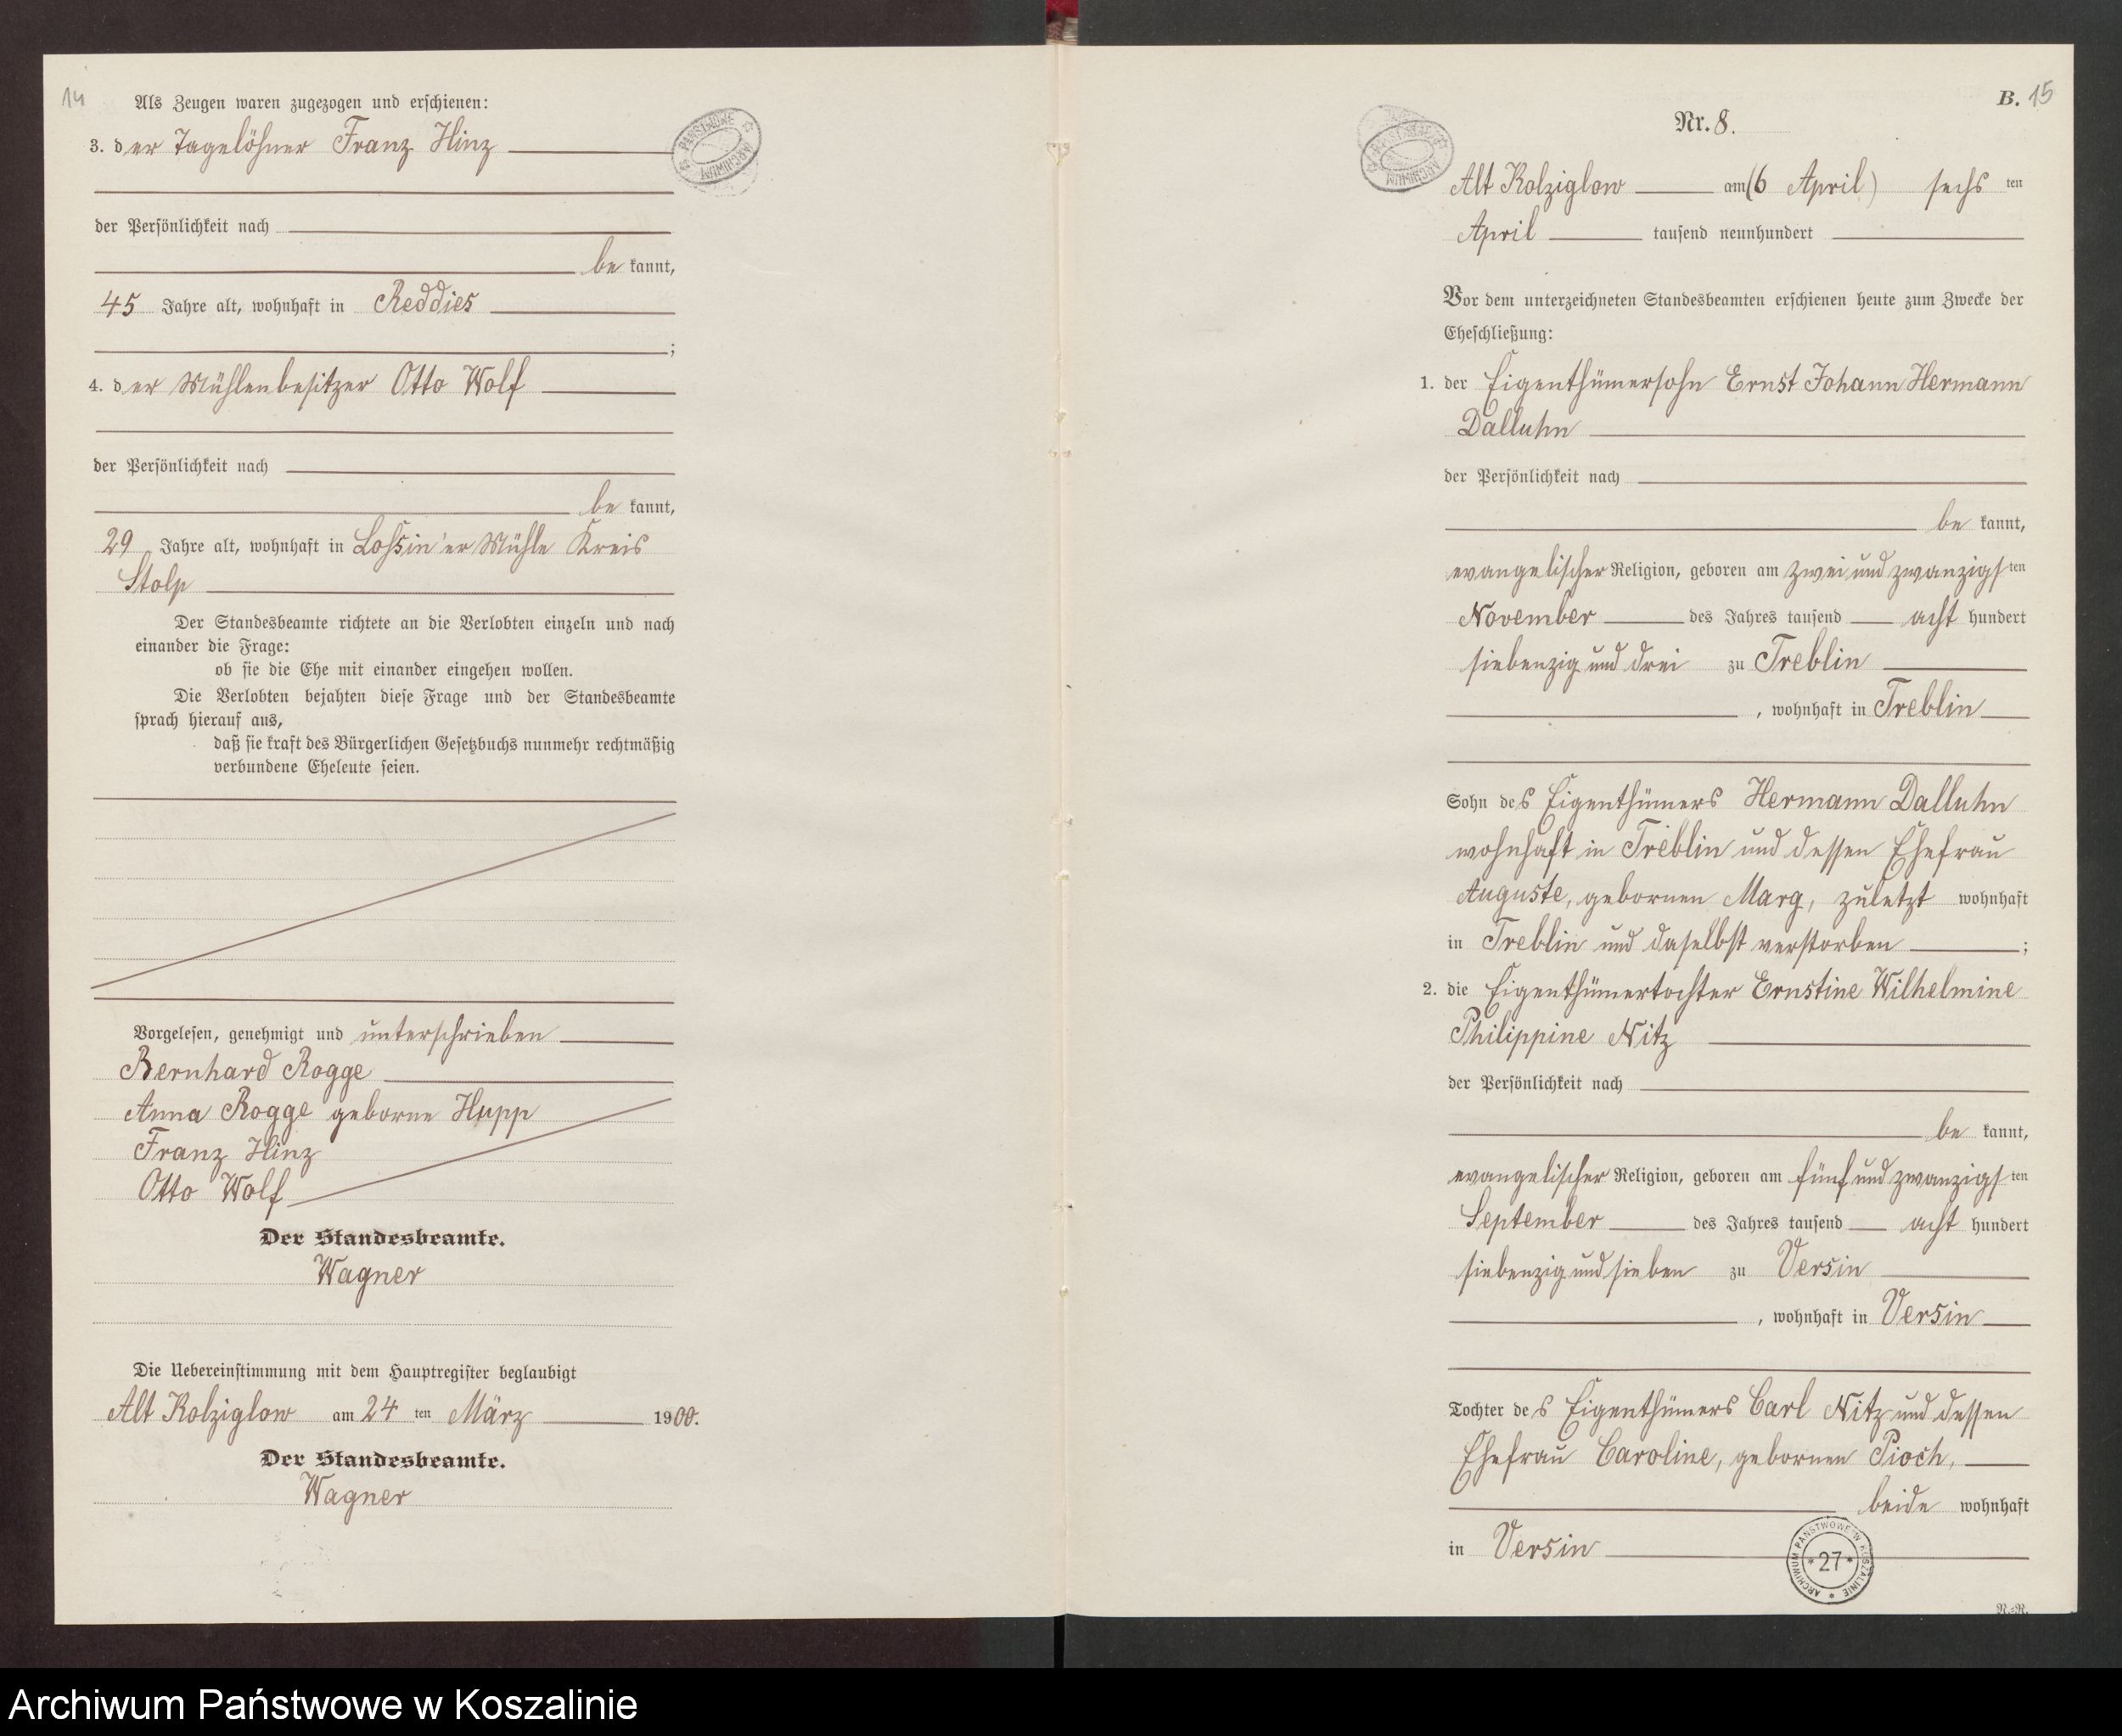 14
Als Zeugen waren zugezogen und erschienen:
3. der Tagelöhner Franz Hinz
der Persönlichkeit nach
be kannt,
45 Jahre alt, wohnhaft in Reddies
;
4. der Mühlenbesitzer Otto Wolf
der Persönlichkeit nach
be kannt,
29 Jahre alt, wohnhaft in Lossin'er Mühle Kreis
Stolp
Der Standesbeamte richtete an die Verlobten einzeln und nach
einander die Frage:
ob sie die Ehe mit einander eingehen wollen.
Die Verlobten bejahten diese Frage und der Standesbeamte
sprach hierauf aus,
daß sie kraft des Bürgerlichen Gesetzbuchs nunmehr rechtmäßig
verbundene Eheleute seien.
Vorgelesen, genehmigt und unterschrieben
Bernhard Rogge
Anna Rogge geborne Hupp
Franz Hinz
Otto Wolf
Der Standesbeamte.
Wagner
Die Uebereinstimmung mit dem Hauptregister beglaubigt
Alt Kolziglow am 24 ten März 1900.
Der Standesbeamte.
Wagner
PAŃSTWOWE ARCHIWUM
B. 15
Nr. 8.
ARCHIWUM
Alt Kolziglow am (6 April) sechs ten
April tausend neunhundert
Vor dem unterzeichneten Standesbeamten erschienen heute zum Zwecke der
Eheschließung:
1. der Eigenthümersohn Ernst Johann Hermann
Dalluhn
der Persönlichkeit nach
be kannt,
evangelischer Religion, geboren am zwei und zwanzigsten
November des Jahres tausend acht hundert
siebenzig und drei zu Treblin
, wohnhaft in Treblin
Sohn des Eigenthümers Hermann Dalluhn
wohnhaft in Treblin und dessen Ehefrau
Auguste, gebornen Marg, zuletzt wohnhaft
in Treblin und daselbst verstorben ;
2. die Eigenthümertochter Ernstine Wilhelmine
Philippine Nitz
der Persönlichkeit nach
be kannt,
evangelischer Religion, geboren am fünf und zwanzigsten
September des Jahres tausend acht hundert
siebenzig und sieben zu Versin
, wohnhaft in Versin
Tochter des Eigenthümers Carl Nitz und dessen
Ehefrau Caroline, gebornen Pioch,
beide wohnhaft
in Versin
ARCHIWUM PAŃSTWOWE W KOSZALINIE * 27 *
N.-R.
Archiwum Państwowe w Koszalinie